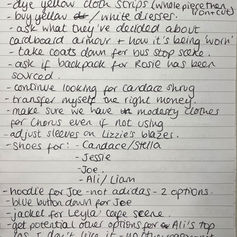 - dye yellow cloth scraps (whole piece then iron + cut)
- buy yellow / white dresses.
- ask what they've decided about
cardboard armour + how it's being worn
- take coats down for bus stop scene.
- ask if backpack for Rosie has been
sourced.
- continue looking for candace shrug
- transfer myself the right money.
- make sure we have modesty clothes
for chorus even if not using
- adjust sleeves on Lizzie's blazer.
- shoes for: - Candace/Stella
- Jessie
- Joe
- Ali/Liam
- hoodie for Joe - not adidas - 2 options.
- blue button down for Joe
- jacket for Leyla cafe scene.
- get potential other options for Ali's top
as I don't like it